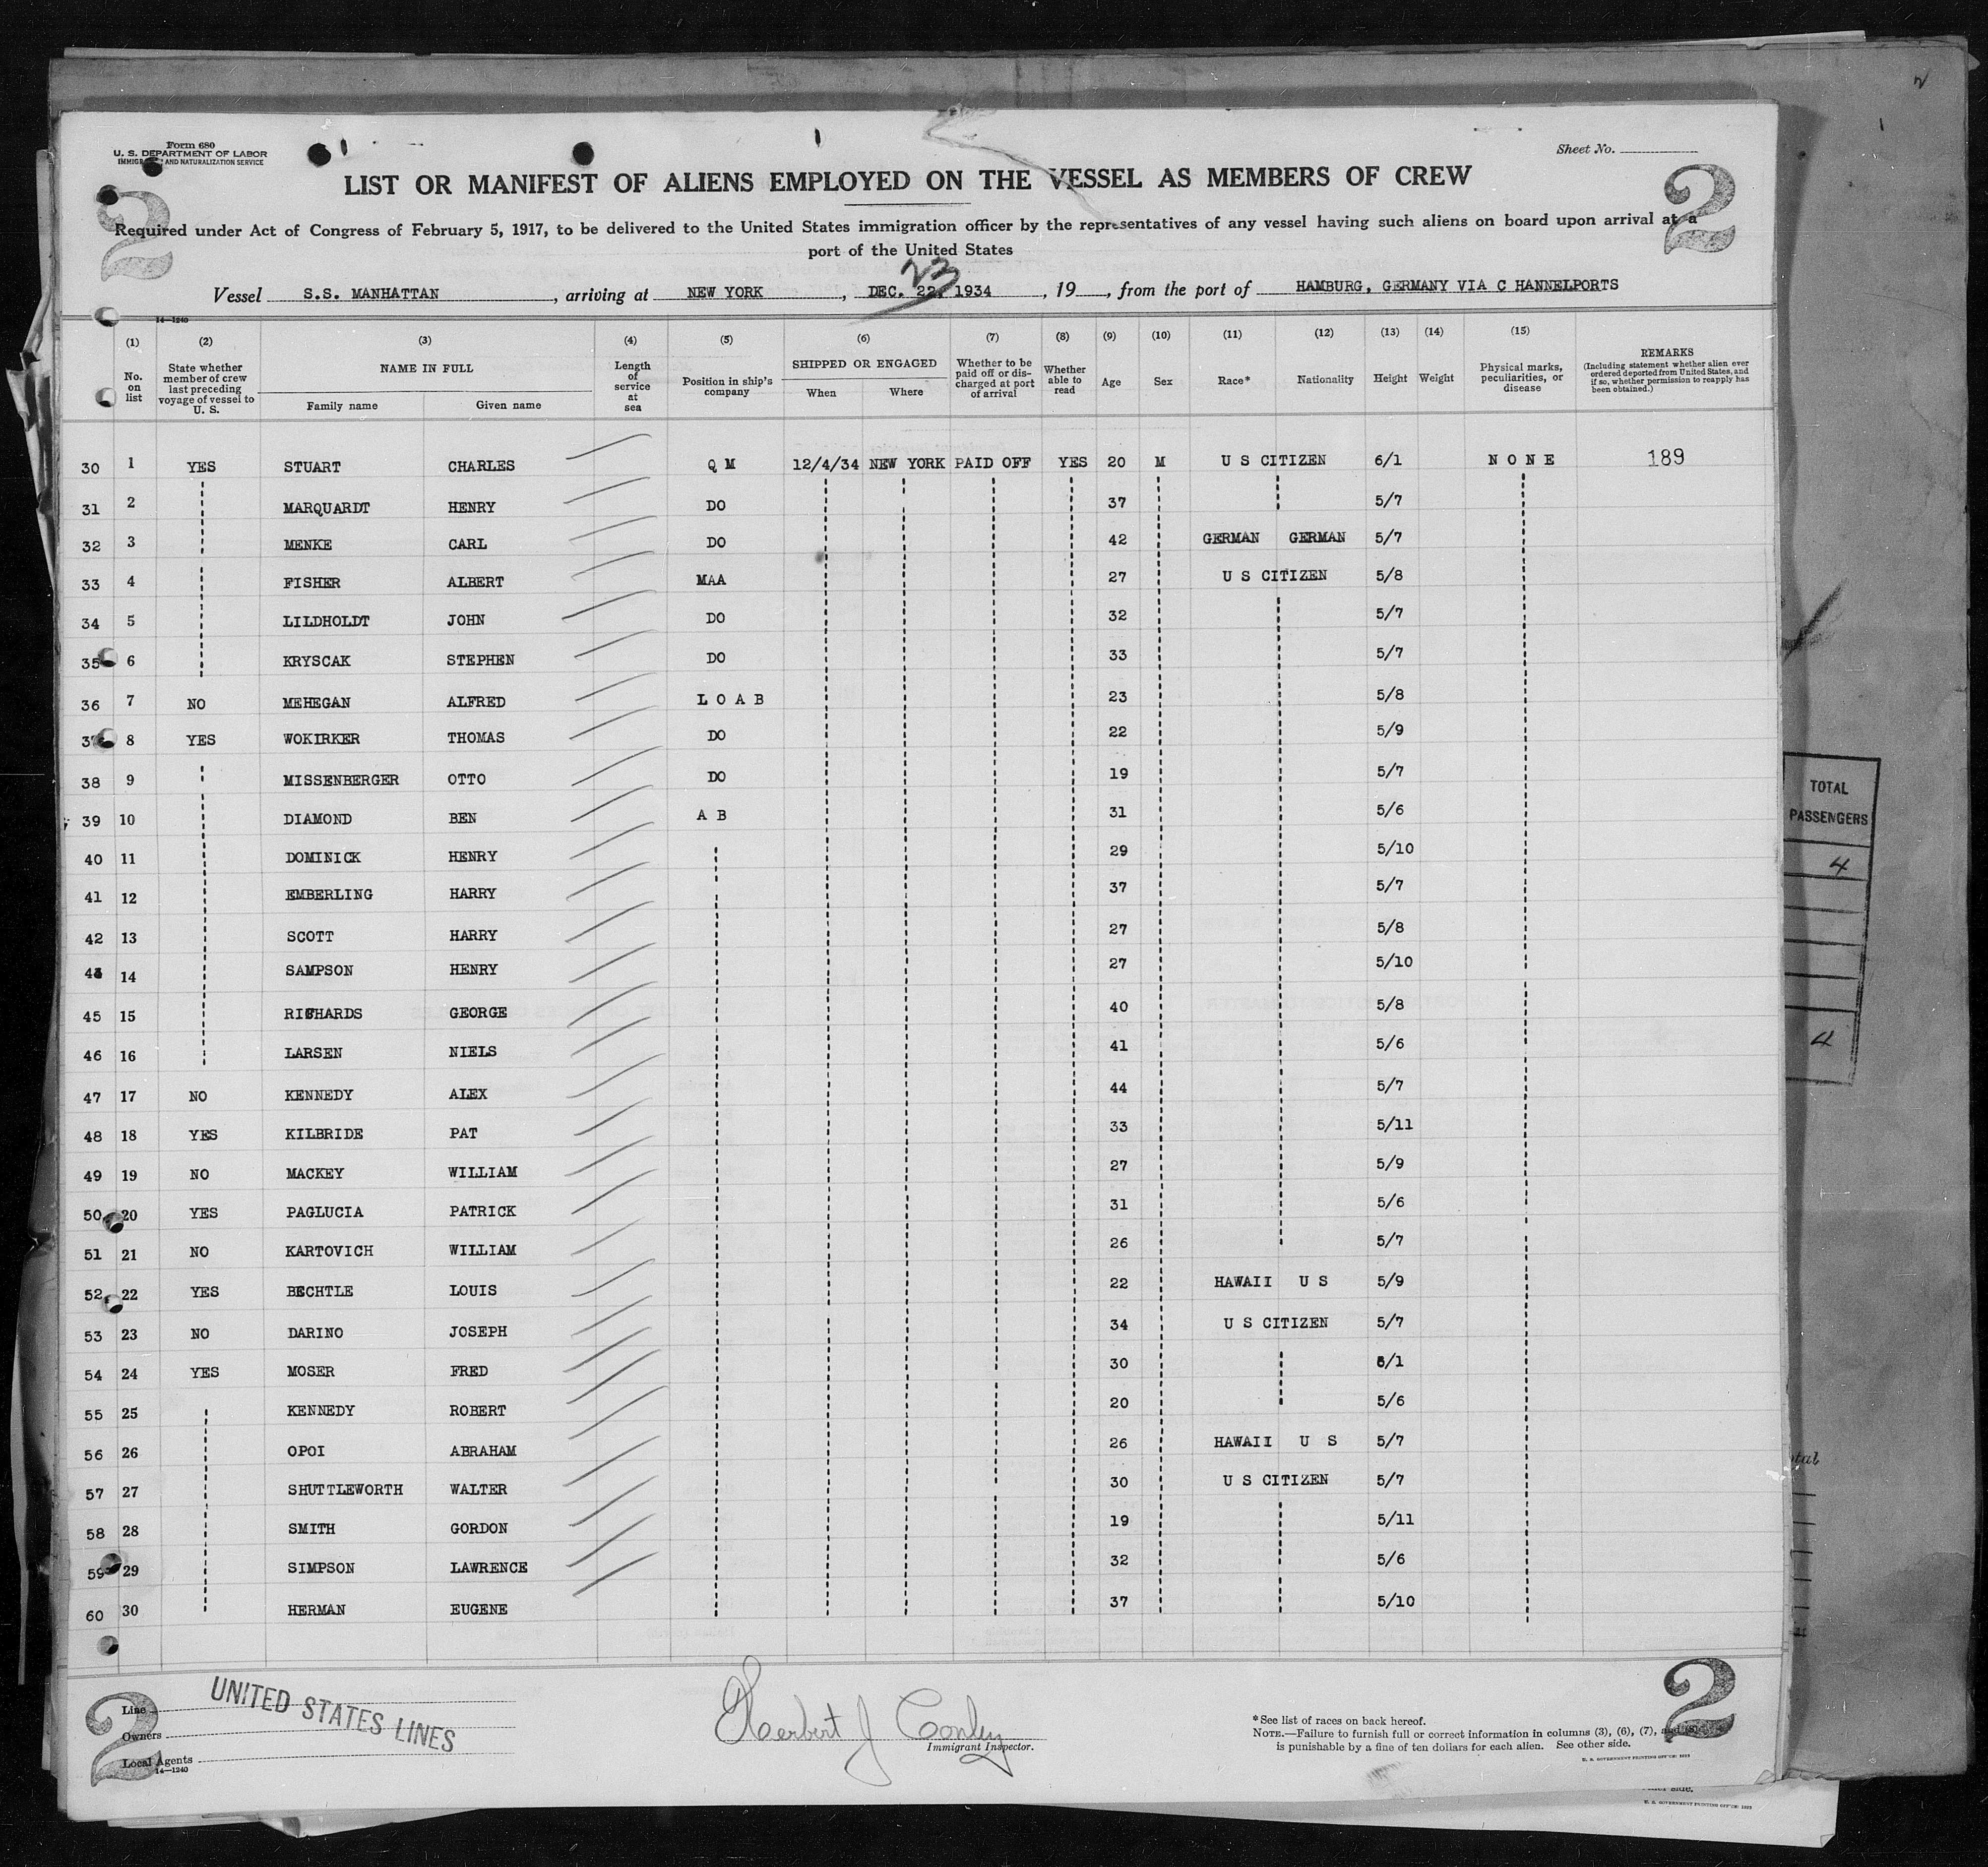 Form 680
U. S. DEPARTMENT OF LABOR
AND NATURALIZATION SERVICE
Sheet No.
2 2
LIST OR MANIFEST OF ALIENS EMPLOYED ON THE VESSEL AS MEMBERS OF CREW
Required under Act of Congress of February 5, 1917, to be delivered to the United States immigration officer by the representatives of any vessel having such aliens on board upon arrival at a
port of the United States
23
Vessel S.S. MANHATTAN , arriving at NEW YORK , DEC. 22, 1934 , 19 , from the port of HAMBURG, GERMANY VIA C HANNELPORTS
14—1240
(1) (2) (3) (4) (5) (6) (7) (8) (9) (10) (11) (12) (13) (14) (15)
No. on list
State whether member of crew last preceding voyage of vessel to U. S.
NAME IN FULL
Family name Given name
Length of service at sea
Position in ship's company
SHIPPED OR ENGAGED
When Where
Whether to be paid off or discharged at port of arrival
Whether able to read
Age
Sex
Race*
Nationality
Height
Weight
Physical marks, peculiarities, or disease
REMARKS
(Including statement whether alien ever ordered deported from United States, and if so, whether permission to reapply has been obtained.)
30 1 YES STUART CHARLES Q M 12/4/34 NEW YORK PAID OFF YES 20 M U S CITIZEN 6/1 N O N E 189
31 2 MARQUARDT HENRY DO 37 5/7
32 3 MENKE CARL DO 42 GERMAN GERMAN 5/7
33 4 FISHER ALBERT MAA 27 U S CITIZEN 5/8
34 5 LILDHOLDT JOHN DO 32 5/7
35 6 KRYSCAK STEPHEN DO 33 5/7
36 7 NO MEHEGAN ALFRED L O A B 23 5/8
37 8 YES WOKIRKER THOMAS DO 22 5/9
38 9 MISSENBERGER OTTO DO 19 5/7
39 10 DIAMOND BEN A B 31 5/6
40 11 DOMINICK HENRY 29 5/10
41 12 EMBERLING HARRY 37 5/7
42 13 SCOTT HARRY 27 5/8
14 SAMPSON HENRY 27 5/10
45 15 RICHARDS GEORGE 40 5/8
46 16 LARSEN NIELS 41 5/6
47 17 NO KENNEDY ALEX 44 5/7
48 18 YES KILBRIDE PAT 33 5/11
49 19 NO MACKEY WILLIAM 27 5/9
50 20 YES PAGLUCIA PATRICK 31 5/6
51 21 NO KARTOVICH WILLIAM 26 5/7
52 22 YES BECHTLE LOUIS 22 HAWAII U S 5/9
53 23 NO DARINO JOSEPH 34 U S CITIZEN 5/7
54 24 YES MOSER FRED 30 6/1
55 25 KENNEDY ROBERT 20 5/6
56 26 OPOI ABRAHAM 26 HAWAII U S 5/7
57 27 SHUTTLEWORTH WALTER 30 U S CITIZEN 5/7
58 28 SMITH GORDON 19 5/11
59 29 SIMPSON LAWRENCE 32 5/6
60 30 HERMAN EUGENE 37 5/10
TOTAL
PASSENGERS
4
4
2 2
Line
Owners
Local Agents
14—1240
UNITED STATES LINES
Herbert J Conley
Immigrant Inspector.
*See list of races on back hereof.
NOTE.—Failure to furnish full or correct information in columns (3), (6), (7), and (8)
is punishable by a fine of ten dollars for each alien. See other side.
U. S. GOVERNMENT PRINTING OFFICE
side.
U. S. GOVERNMENT PRINTING OFFICE